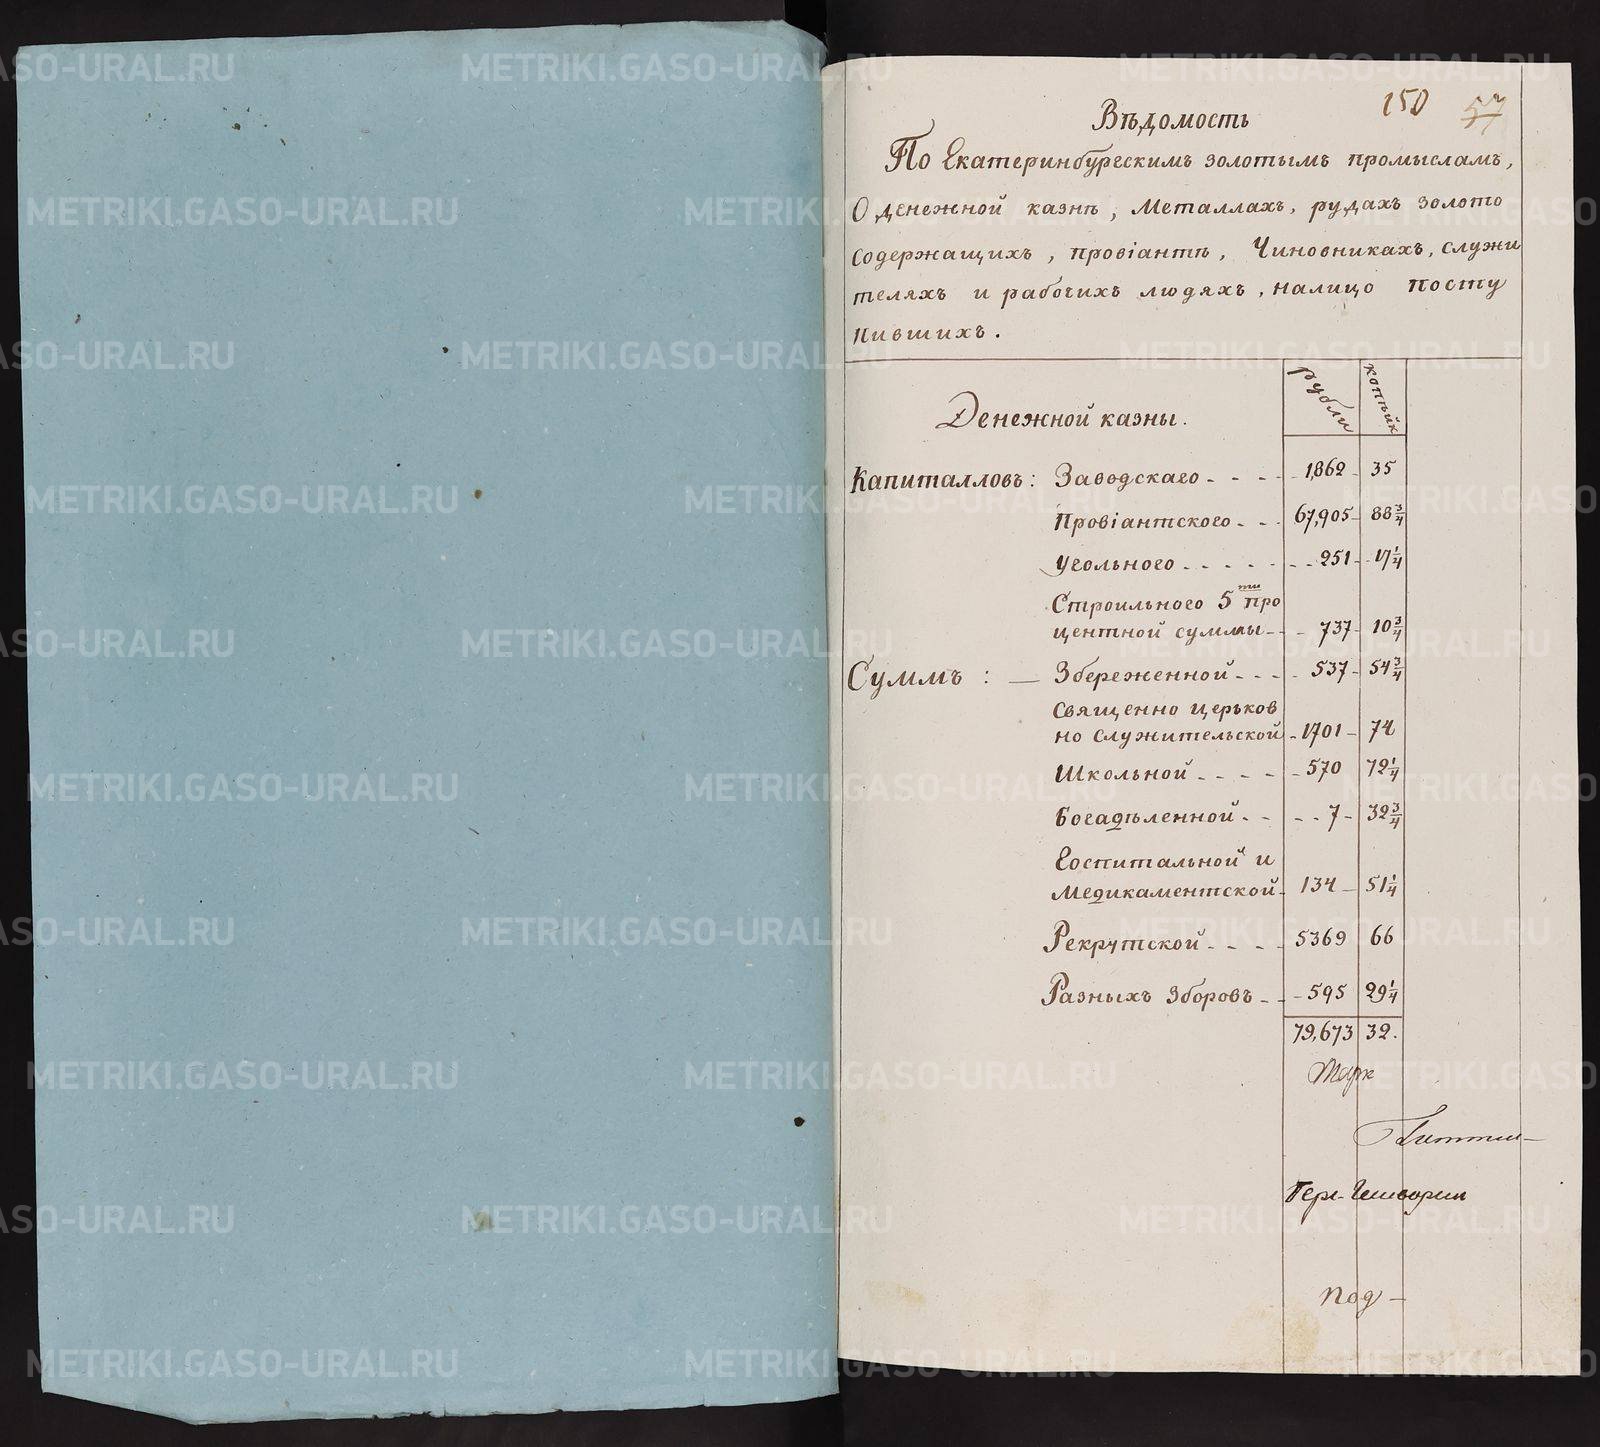 150 57
Вѣдомость
По Екатеринбургскимъ золотымъ промысламъ,
О денежной казнѣ, Металлахъ, рудахъ золото
содержащихъ, провіантѣ, Чиновникахъ, служи
теляхъ и рабочихъ людяхъ, налицо посту
пившихъ.
рубли копѣйк
Денежной казны.
Капиталловъ: Заводскаго - - - - 1,862 - 35
Провіантского - - - 67,905 - 88 3/4
Угольного - - - - - - - 251 - 17 1/4
Строильного 5ти про
центной суммы - - - 737 - 10 3/4
Суммъ: — Збереженной - - - - 537 - 54 3/4
Священно церьков
но служительской - 1701 - 74
Школьной - - - - - 570 72 1/4
Богадѣленной - - - - 7 - 32 3/4
Госпитальной и
Медикаментской - 134 - 51 1/4
Рекрутской - - - - 5369 66
Разныхъ Зборовъ - - - 595 29 1/4
79,673 32.
под -
METRIKI.GASO-URAL.RU